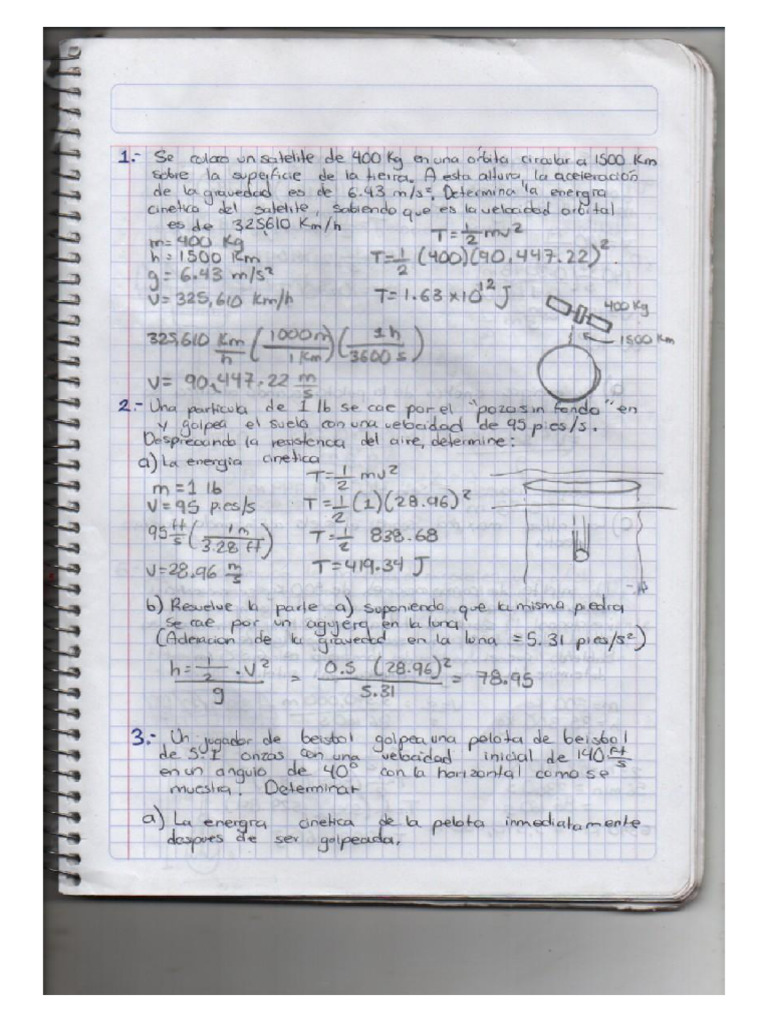 1.- Se coloco un satelite de 400 Kg en una orbita circular a 1500 Km
sobre la superficie de la tierra. A esta altura, la aceleración
de la gravedad es de 6.43 m/s². Determina la energia
cinetica del satelite, sabiendo que es la velocidad orbital
es de 325610 Km/h
m=400 Kg
h=1500 Km
g=6.43 m/s²
V=325,610 Km/h
T=1/2 mv²
T=1/2 (400)(90,447.22)²
T=1.63 x10¹² J
400 Kg
1500 Km
325,610 Km/h (1000m/1 Km)(1h/3600 s)
V= 90,447.22 m/s
2.- Una particula de 1 lb se cae por el "pozo sin fondo" en
y golpea el suelo con una velocidad de 95 pies/s.
Despreciando la resistencia del aire, determine:
a) La energia cinetica
m=1 lb
V=95 pies/s
95 ft/s (1m/3.28 ft)
V=28.96 m/s
T=1/2 mv²
T=1/2 (1)(28.96)²
T=1/2 838.68
T=419.34 J
b) Resuelve la parte a) suponiendo que la misma piedra
se cae por un agujero en la luna.
(Aceleracion de la gravedad en la luna = 5.31 pies/s²)
h=1/2 . V² / g = 0.5 (28.96)² / 5.31 = 78.95
3.- Un jugador de beisbol golpea una pelota de beisbol
de 5.1 onzas con una velocidad inicial de 140 ft/s
en un angulo de 40° con la horizontal como se
muestra. Determinar
a) La energia cinetica de la pelota inmediatamente
despues de ser golpeada.